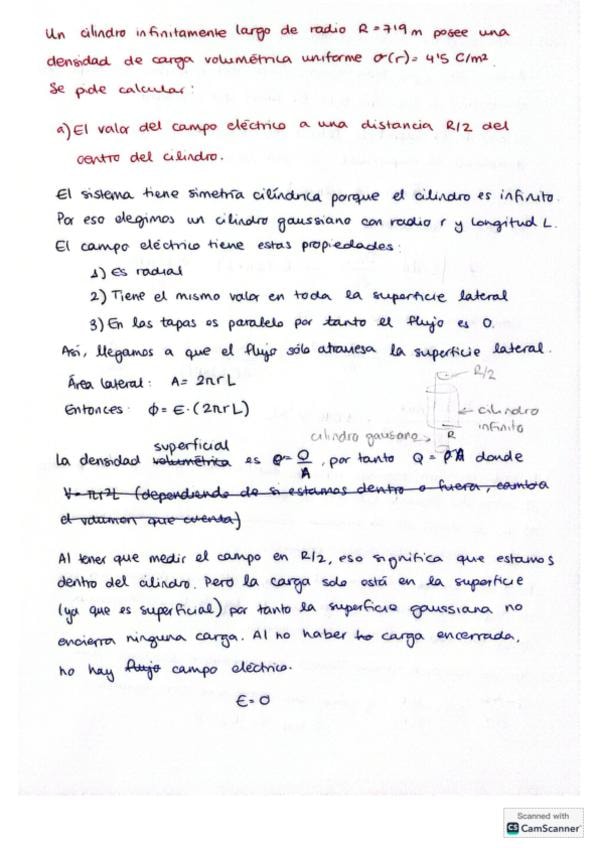 Un cilindro infinitamente largo de radio R = 7'9 m posee una
densidad de carga volumétrica uniforme σ(r) = 4'5 C/m².
Se pide calcular:
a) El valor del campo eléctrico a una distancia R/2 del
centro del cilindro.
El sistema tiene simetría cilíndrica porque el cilindro es infinito.
Por eso elegimos un cilindro gaussiano con radio r y longitud L.
El campo eléctrico tiene estas propiedades:
1) Es radial
2) Tiene el mismo valor en toda la superficie lateral
3) En las tapas es paralelo por tanto el flujo es 0.
Así, llegamos a que el flujo sólo atraviesa la superficie lateral.
R/2
Área lateral: A = 2πrL
Entonces: Φ = E·(2πrL)
cilindro
infinito
cilindro gausano
R
superficial
La densidad volumétrica es = Q/A, por tanto Q = A donde
V = πr²L (dependiendo de si estamos dentro o fuera, cambia
el volumen que cuenta)
Al tener que medir el campo en R/2, eso significa que estamos
dentro del cilindro. Pero la carga solo está en la superficie
(ya que es superficial) por tanto la superficie gaussiana no
encierra ninguna carga. Al no haber carga encerrada,
no hay flujo campo eléctrico.
E = 0
Scanned with
CS CamScanner